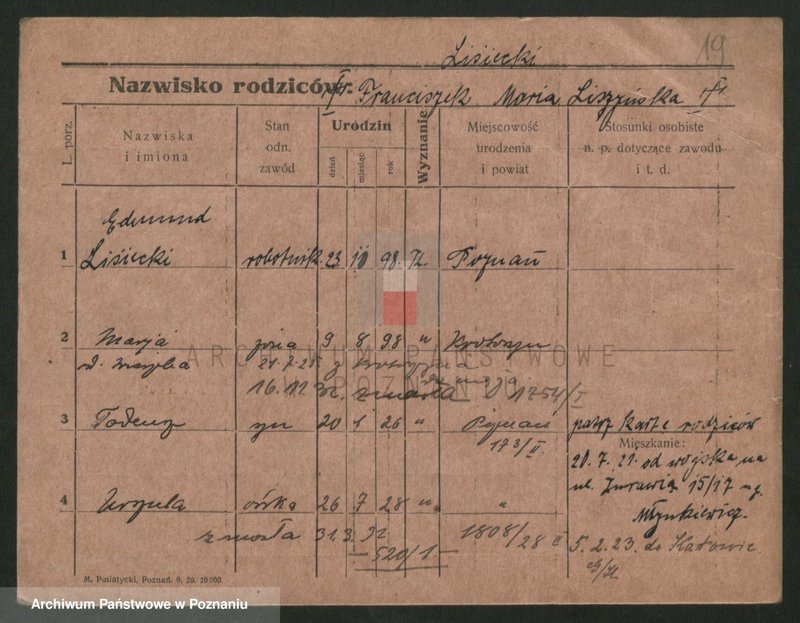 19
Lisiecki
Nazwisko rodziców: Franciszek Maria Liszyńska
L. porz.
Nazwiska i imiona
Stan odn. zawód
Urodzin
dzień
miesiąc
rok
Wyznanie
Miejscowość urodzenia i powiat
Stosunki osobiste n. p. dotyczące zawodu i t. d.
Edmund
1 Lisiecki robotnik 23 98 Poznań
2 Marja żona 9 8 98 "
d.
ARCHIWUM PAŃSTWOWE
POZNAŃ
21.7.25 z
16.11.32. zmarła 1754/I
3 Tadeusz syn 20 1 26 " Poznań patrz Karte rodziców
173/II.
Mieszkanie:
20. 7. 21. od wojska na
ul. Żurawia 15/17 
Młynkiewicz.
4 Urszula córka 26 7 28 " "
zmarła 31.3.32 1808/28 II
5.2.23. do Katowic
520/1.
M. Putiatycki, Poznań. 9. 20. 20 000.
Archiwum Państwowe w Poznaniu